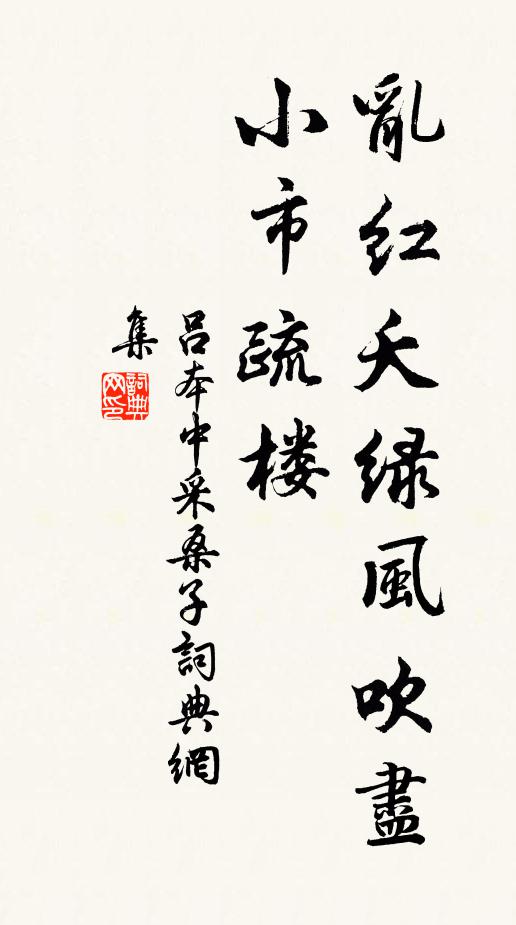 亂紅夭绿風吹盡
小市疏楼
吕本中采桑子詞典網
集
詞典网印